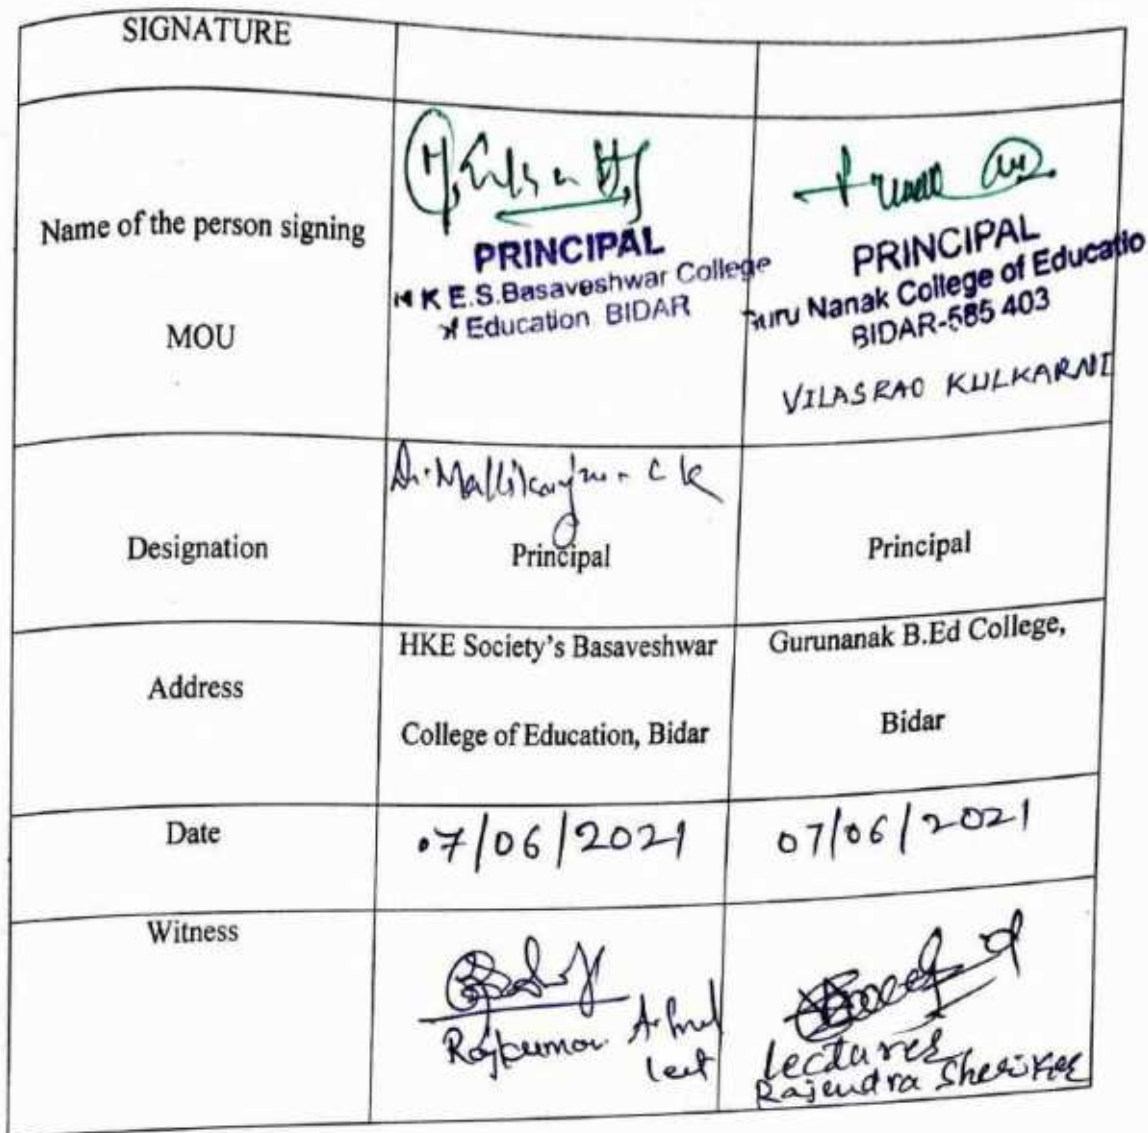 SIGNATURE
Name of the person signing
MOU
PRINCIPAL
K E.S.Basaveshwar College
Education BIDAR
PRINCIPAL
Nanak College of Educatio
BIDAR-585 403
VILASRAO KULKARNI
Designation
Dr. Mallikarjun C K
Principal
Principal
Address
HKE Society's Basaveshwar
College of Education, Bidar
Gurunanak B.Ed College,
Bidar
Date
07/06/2021
07/06/2021
Witness
Rajkumar
lect
lecturer
Rajendra